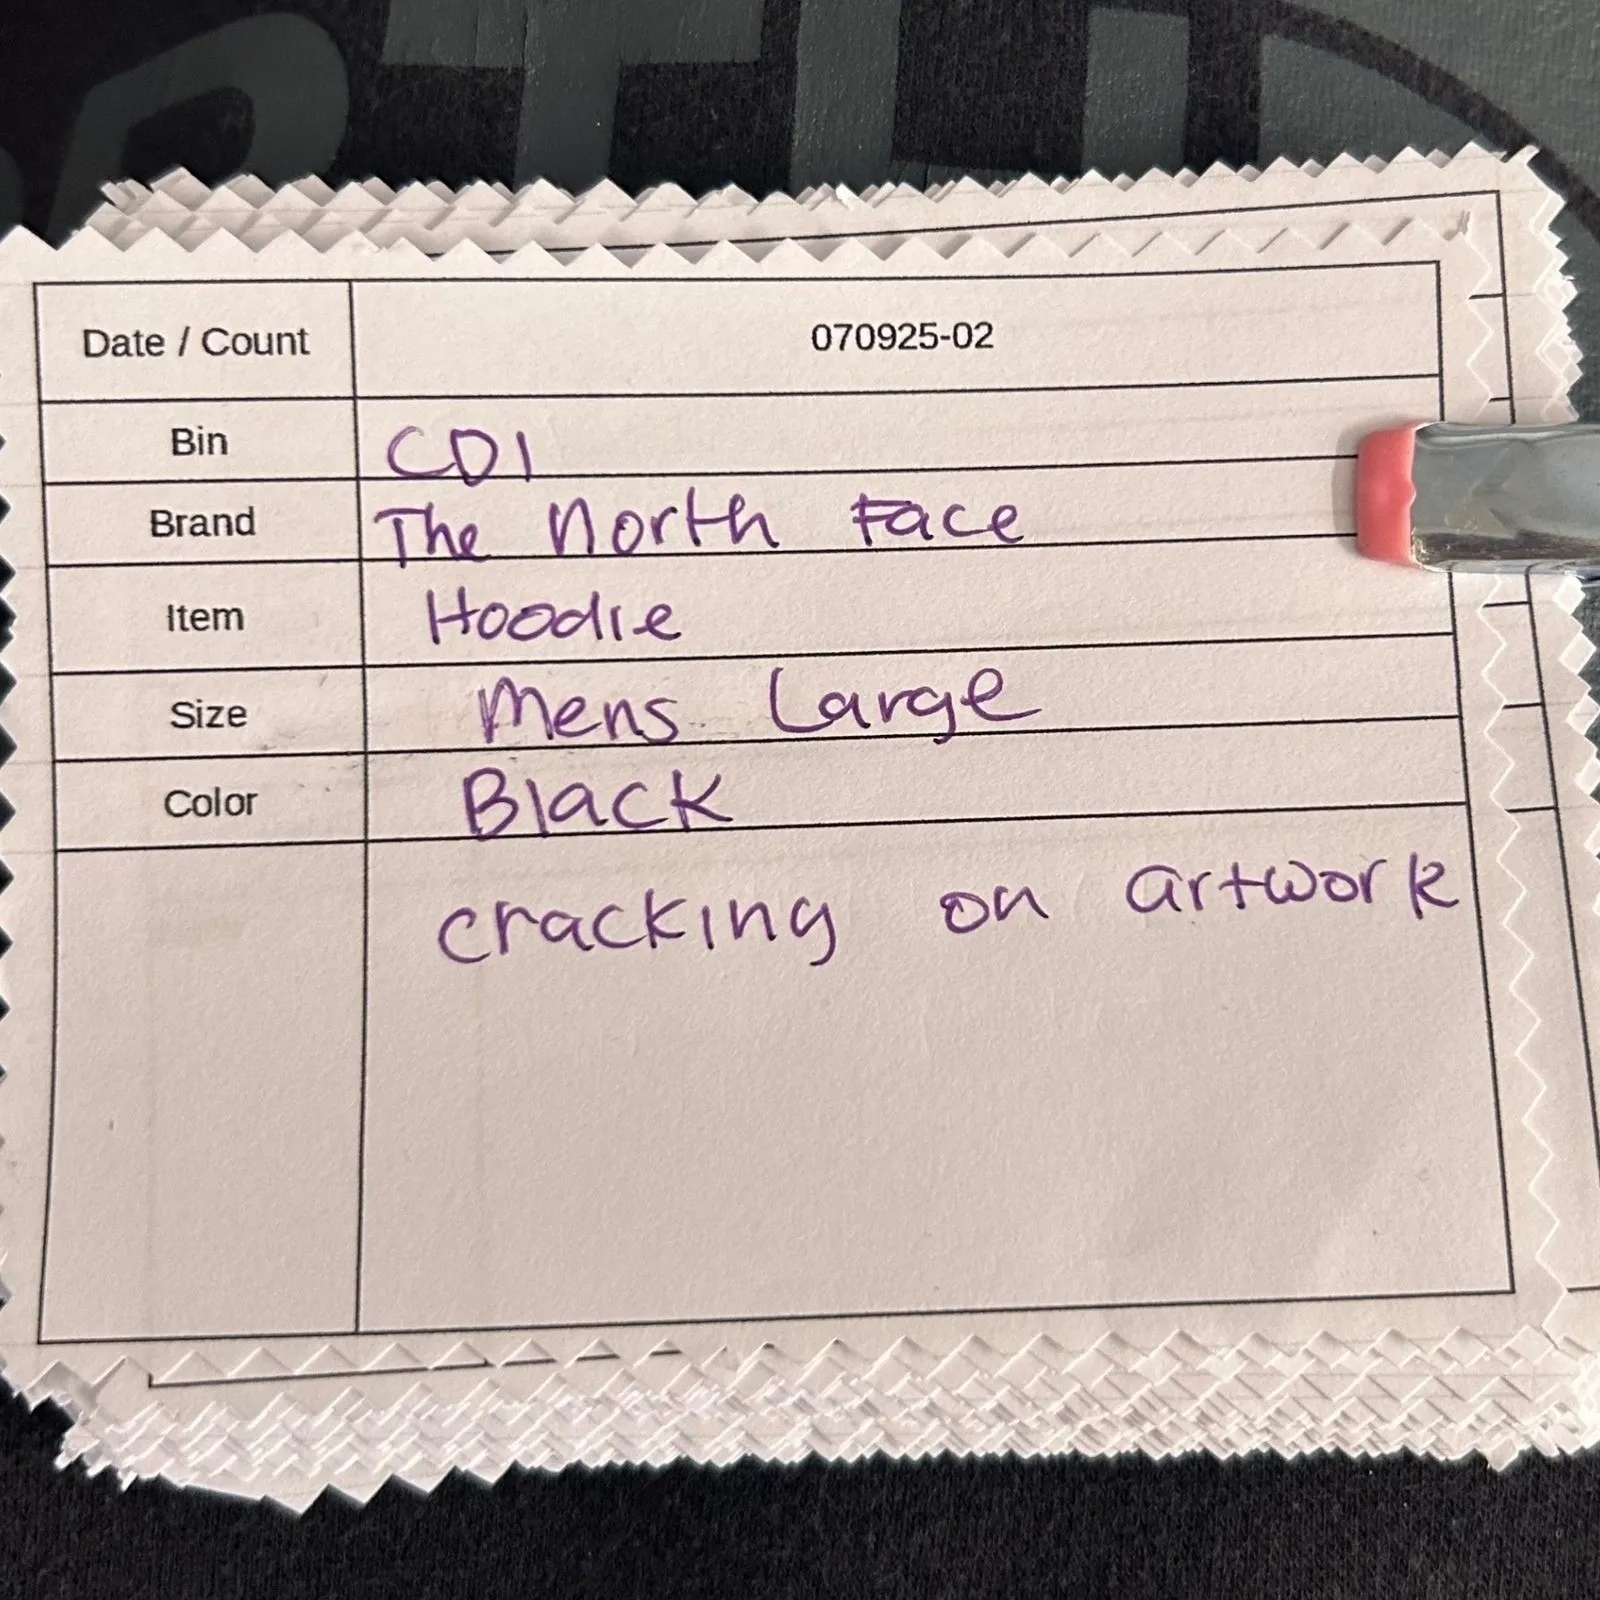 RTH
Date / Count 070925-02
Bin CD1
Brand The North Face
Item Hoodie
Size Mens Large
Color Black
cracking on artwork